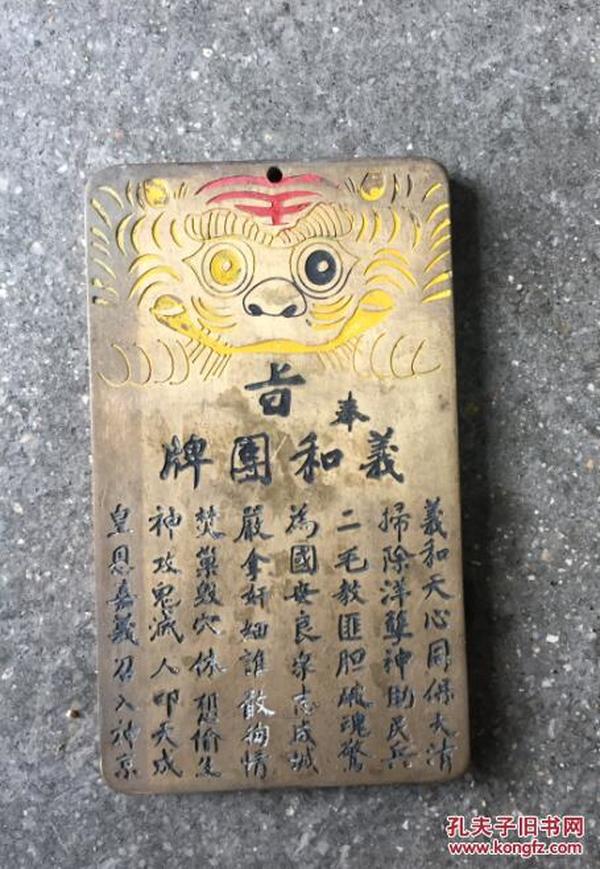 奉
旨
義和團牌
義和天心同保大清
掃除洋孽神助民兵
二毛教匪胆破魂驚
為國安良眾志成城
嚴拿奸細誰敢徇情
焚巢毀穴休想偷生
神攻鬼滅人叩天成
皇恩嘉義召入神京
孔夫子旧书网
www.kongfz.com